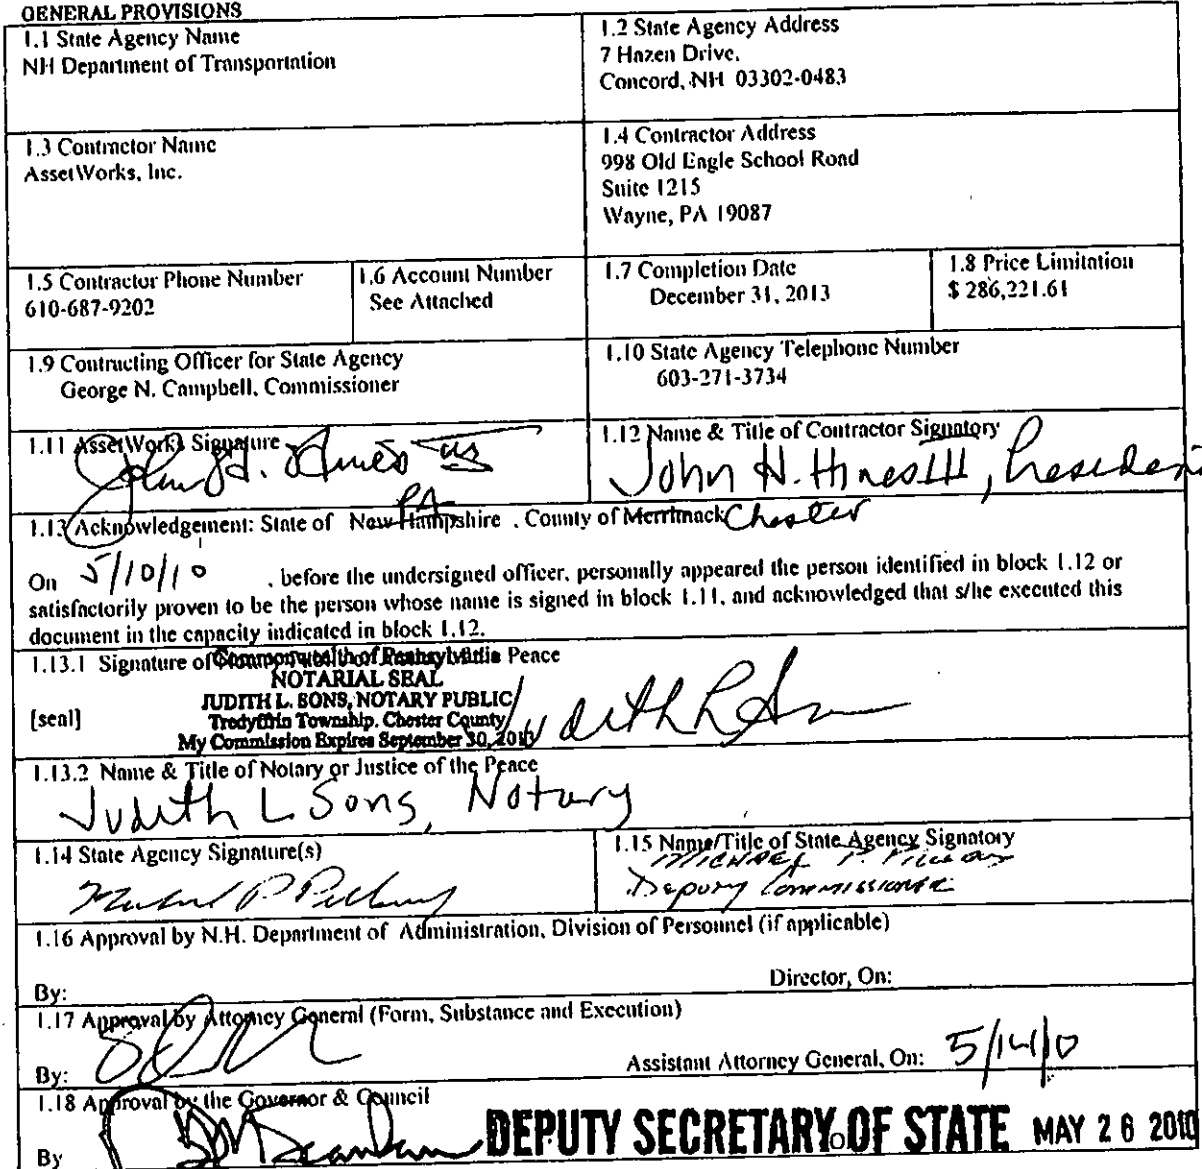 GENERAL PROVISIONS
1.1 State Agency Name
NH Department of Transportation
1.2 State Agency Address
7 Hazen Drive,
Concord, NH 03302-0483
1.3 Contractor Name
AssetWorks, Inc.
1.4 Contractor Address
998 Old Eagle School Road
Suite 1215
Wayne, PA 19087
1.5 Contractor Phone Number
610-687-9202
1.6 Account Number
See Attached
1.7 Completion Date
December 31, 2013
1.8 Price Limitation
$ 286,221.61
1.9 Contracting Officer for State Agency
George N. Campbell, Commissioner
1.10 State Agency Telephone Number
603-271-3734
1.11 AssetWorks Signature
1.12 Name & Title of Contractor Signatory
John H. Hines III, President
PA
1.13 Acknowledgement: State of New Hampshire , County of Merrimack Chester
On 5/10/10 , before the undersigned officer, personally appeared the person identified in block 1.12 or
satisfactorily proven to be the person whose name is signed in block 1.11, and acknowledged that s/he executed this
document in the capacity indicated in block 1.12.
1.13.1 Signature of Peace
Commonwealth of Pennsylvania
NOTARIAL SEAL
JUDITH L. SONS, NOTARY PUBLIC
[seal]
Tredyffrin Township, Chester County
My Commission Expires September 30, 2013
Judith L Sons
1.13.2 Name & Title of Notary or Justice of the Peace
Judith L Sons, Notary
1.14 State Agency Signature(s)
1.15 Name/Title of State Agency Signatory
MICHAEL P. Pillsbury
Deputy Commissioner
1.16 Approval by N.H. Department of Administration, Division of Personnel (if applicable)
By:
Director, On:
1.17 Approval by Attorney General (Form, Substance and Execution)
By:
Assistant Attorney General, On: 5/14/10
1.18 Approval by the Governor & Council
By
DEPUTY SECRETARY OF STATE MAY 26 2010